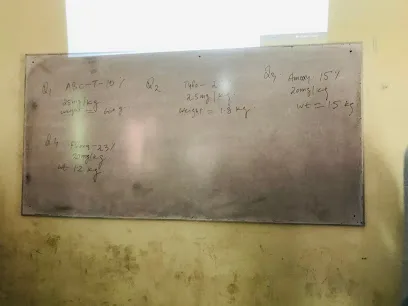 Q1 ABC-T-10%
25mg/kg
weight = 600 g
Q2
2.5mg/kg
weight = 1.8 kg
Q3 Amoxy 15%
20mg/kg
wt = 15 kg
Q4 23%
25mg/kg
wt 12 kg